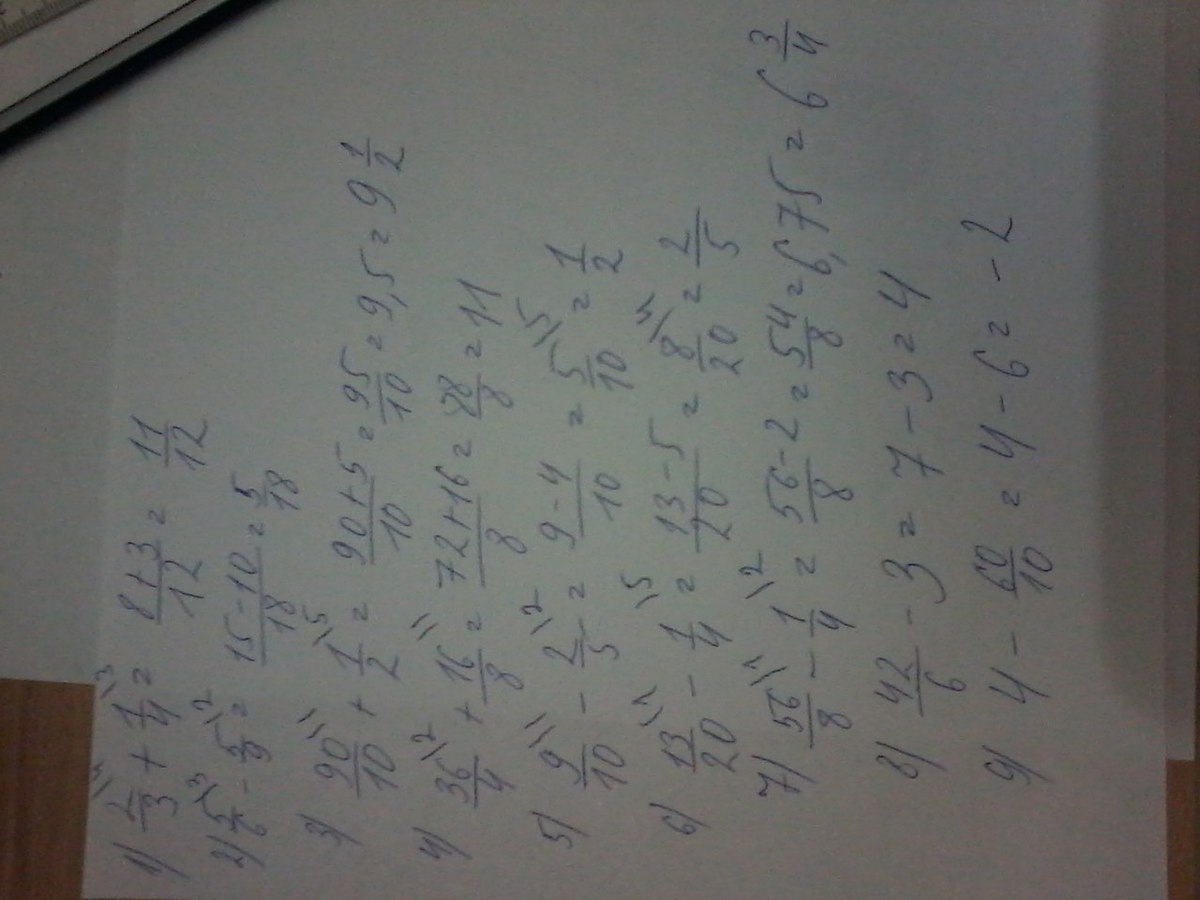 1) 2/3 \4 + 1/4 \3 = 8+3/12 = 11/12
2) 5/6 \3 - 5/9 \2 = 15-10/18 = 5/18
3) 90/10 \1 + 1/2 \5 = 90+5/10 = 95/10 = 9,5 = 9 1/2
4) 36/4 \2 + 16/8 \1 = 72+16/8 = 88/8 = 11
5) 9/10 \1 - 2/5 \2 = 9-4/10 = 5/10 \5 = 1/2
6) 13/20 \1 - 1/4 \5 = 13-5/20 = 8/20 \4 = 2/5
7) 56/8 \1 - 1/4 \2 = 56-2/8 = 54/8 = 6,75 = 6 3/4
8) 42/6 - 3 = 7 - 3 = 4
9) 4 - 60/10 = 4 - 6 = -2